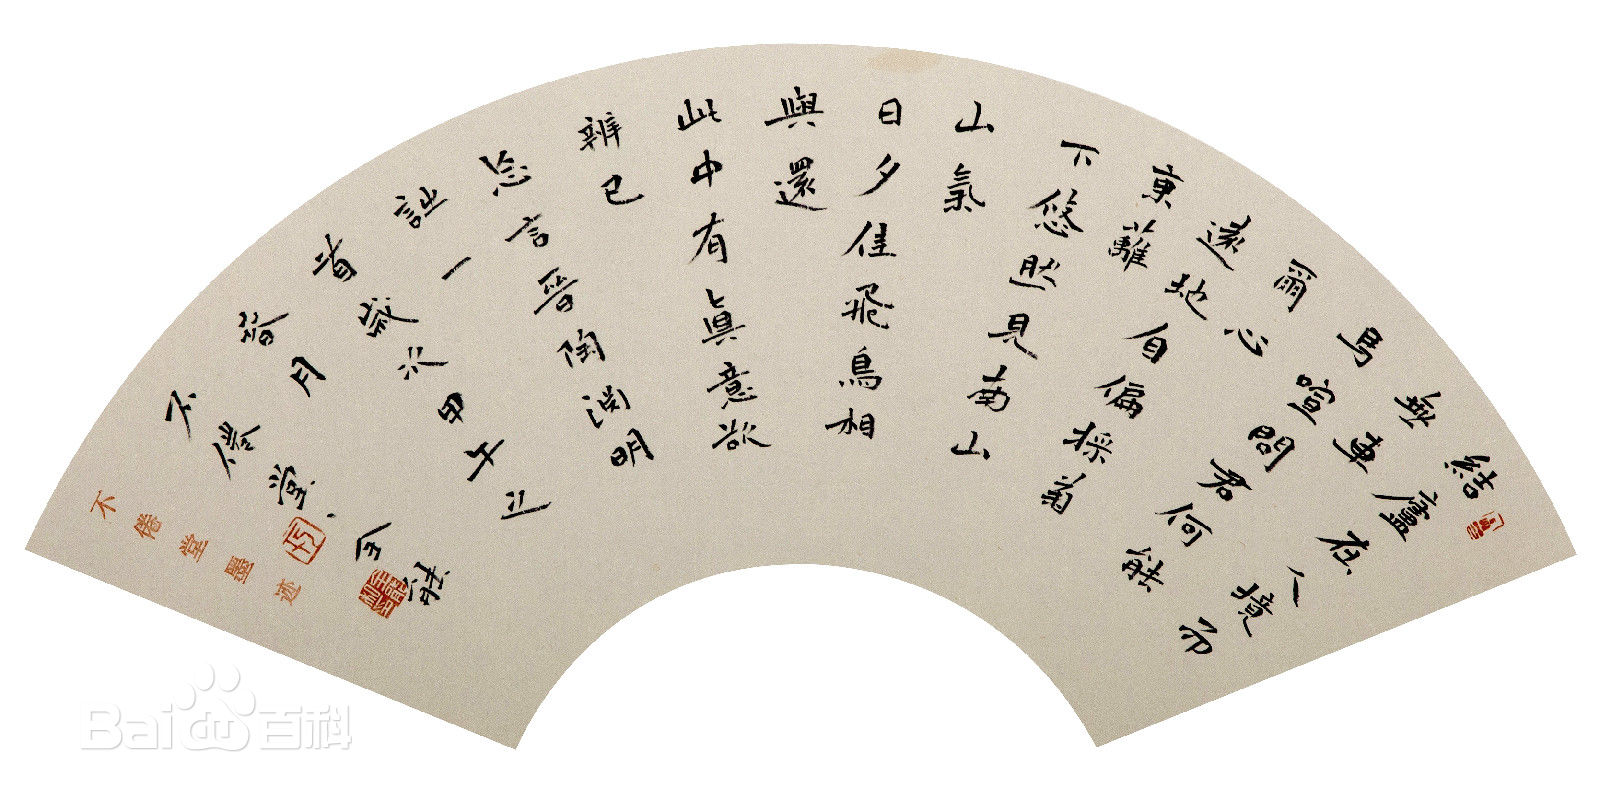 結廬在人境而
無車
馬喧問君何能
爾心
遠地自偏採菊
東籬
下悠然見南山
山氣
日夕佳飛鳥相
與還
此中有眞意欲
辨已
忘言晉陶淵明
詩一
首歲次甲午之
春月
不倦堂
不倦堂墨迹
Bai 百科